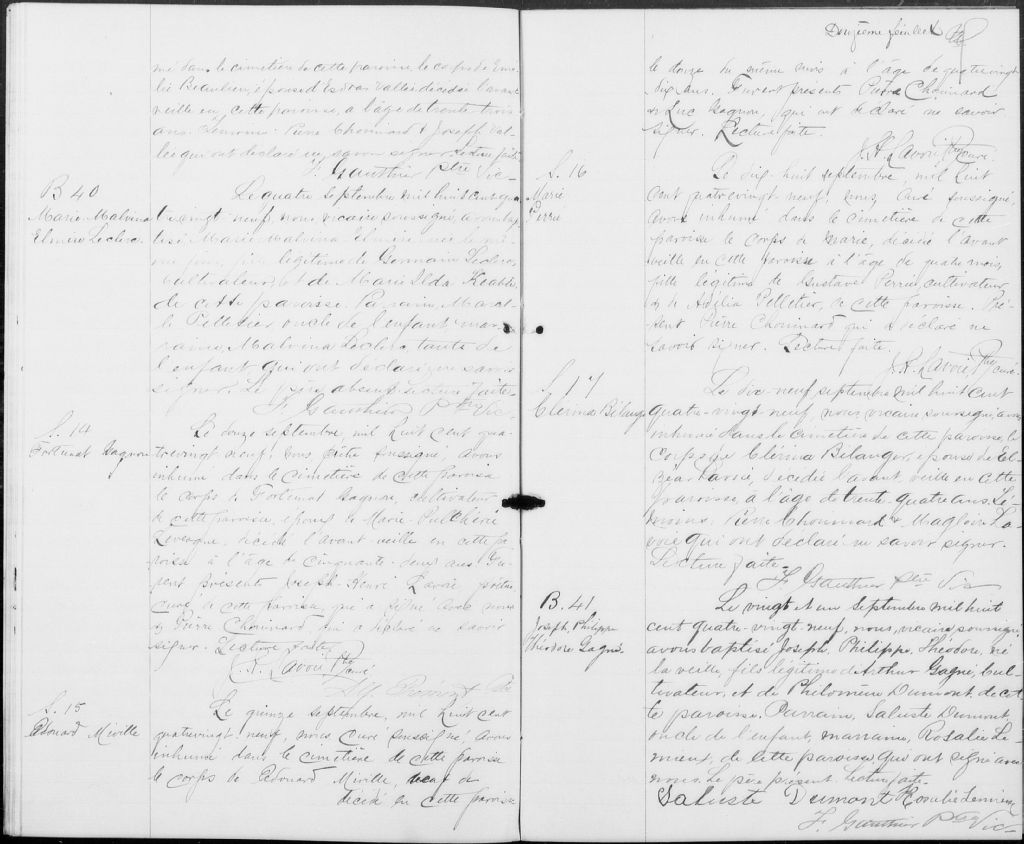 mé dans le cimetière de cette paroisse, le corps de Emé-
lie Beaulieu, épouse d'Esdras Vallée décédée l'avant
veille en cette paroisse, à l'âge de trente trois
ans. Témoins: Pierre Chouinard & Joseph Val-
lée qui ont déclaré ne savoir signer. Lecture faite.
F. Gauthier Ptre Vic-
B 40
Marie-Malvina
Elmire Leclerc.
Le quatre septembre mil huit cent qua-
tre vingt-neuf, nous vicaire soussigné, avons bap-
tisé, Marie-Malvina-Elmire née le mê-
me jour, fille légitime de Germain Leclerc,
cultivateur, et de Marie Ilda
de cette paroisse. Parrain,
Pelletier, oncle de l'enfant, mar-
raine, Malvina Leclerc, tante de
l'enfant qui ont déclaré ne savoir
signer. Le père absent. Lecture faite.
F. Gauthier Ptre Vic-
S. 14
Fortunat Gagnon
Le douze septembre, mil huit cent qua-
trevingt neuf, nous prêtre soussigné, avons
inhumé dans le cimetière de cette paroisse
le corps de Fortunat Gagnon, cultivateur
de cette paroisse, époux de Marie-Pulchérie
Levesque, décédé l'avant-veille en cette pa
roisse à l'âge de cinquante-deux ans. Fu-
rent présents Joseph-Henri Lavoie, prêtre
curé de cette paroisse, qui a signé avec nous
& Pierre Chouinard, qui a déclaré ne savoir
signer. Lecture faite.
J. H. Lavoie Ptre curé
Ptre
S. 15
Edouard Miville
Le quinze septembre, mil huit cent
quatrevingt neuf, nous curé soussigné avons
inhumé dans le cimetière de cette paroisse
le corps de Edouard Miville, veuf de
décédé en cette paroisse
Douzième feuillet
le douze du même mois à l'âge de quatre vingt
dix ans. Furent présents Pierre Chouinard
& Luc Gagnon, qui ont déclaré ne savoir
signer. Lecture faite.
J. H. Lavoie Ptre Curé.
S. 16
Marie
Perru
Le dix-huit septembre, mil huit
cent quatrevingt neuf, nous, curé soussigné,
avons inhumé dans le cimetière de cette
paroisse le corps de Marie, décédée l'avant
veille en cette paroisse à l'âge de quatre mois,
fille légitime de Gustave Perru, cultivateur
& de Adélia Pelletier, de cette paroisse. Pré-
sent Pierre Chouinard qui a déclaré ne
savoir signer. Lecture faite.
J. H. Lavoie Ptre curé.
S. 17
Clerina Bélanger
Le dix-neuf septembre mil huit cent
quatre-vingt neuf, nous, vicaire soussigné, avons
inhumé dans le cimetière de cette paroisse, le
corps de Clerina Bélanger, épouse de El-
zéar Lavoie, décédée l'avant veille en cette
paroisse, à l'âge de trente-quatre ans. Té-
moins, Pierre Chouinard & Magloire La-
voie qui ont déclaré ne savoir signer.
Lecture faite.
F. Gauthier Ptre Vic
B. 41
Joseph, Philippe
Théodore Gagné.
Le vingt et un septembre mil huit
cent quatre-vingt-neuf, nous, vicaire soussigné,
avons baptisé Joseph, Philippe, Théodore, né
la veille, fils légitime de Arthur Gagné, cul-
tivateur, et de Philomène Dumont, de cet
te paroisse. Parrain, Saluste Dumont,
oncle de l'enfant, marraine, Rosalie Le-
mieux, de cette paroisse qui ont signé avec
nous. Le père présent. Lecture faite.
Saluste Dumont Rosalie Lemieux
F. Gauthier Ptre Vic-